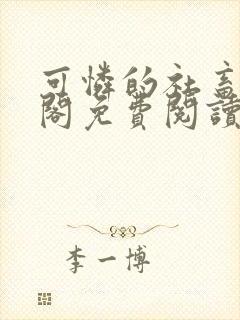 可憐的社畜
閣免費閱讀
李一博